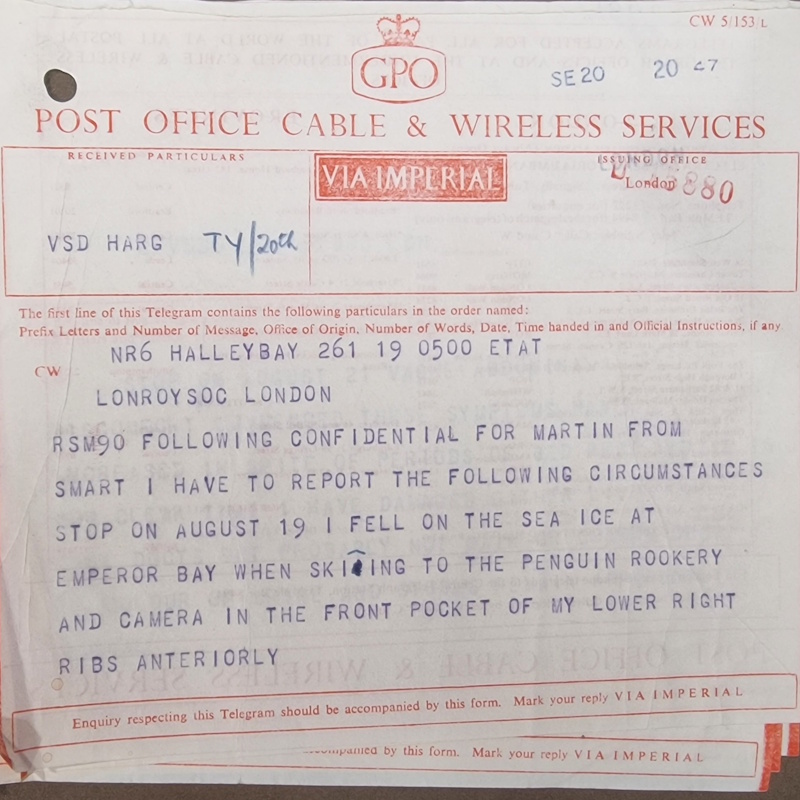 CW 5/153/L
GPO
SE 20 20 47
POST OFFICE CABLE & WIRELESS SERVICES
RECEIVED PARTICULARS
VIA IMPERIAL
ISSUING OFFICE
London
880
VSD HARG TY/20th
The first line of this Telegram contains the following particulars in the order named:
Prefix Letters and Number of Message, Office of Origin, Number of Words, Date, Time handed in and Official Instructions, if any.
NR6 HALLEYBAY 261 19 0500 ETAT
CW
LONROYSOC LONDON
RSM90 FOLLOWING CONFIDENTIAL FOR MARTIN FROM
SMART I HAVE TO REPORT THE FOLLOWING CIRCUMSTANCES
STOP ON AUGUST 19 I FELL ON THE SEA ICE AT
EMPEROR BAY WHEN SKIING TO THE PENGUIN ROOKERY
AND CAMERA IN THE FRONT POCKET OF MY LOWER RIGHT
RIBS ANTERIORLY
Enquiry respecting this Telegram should be accompanied by this form. Mark your reply VIA IMPERIAL
by this form. Mark your reply VIA IMPERIAL